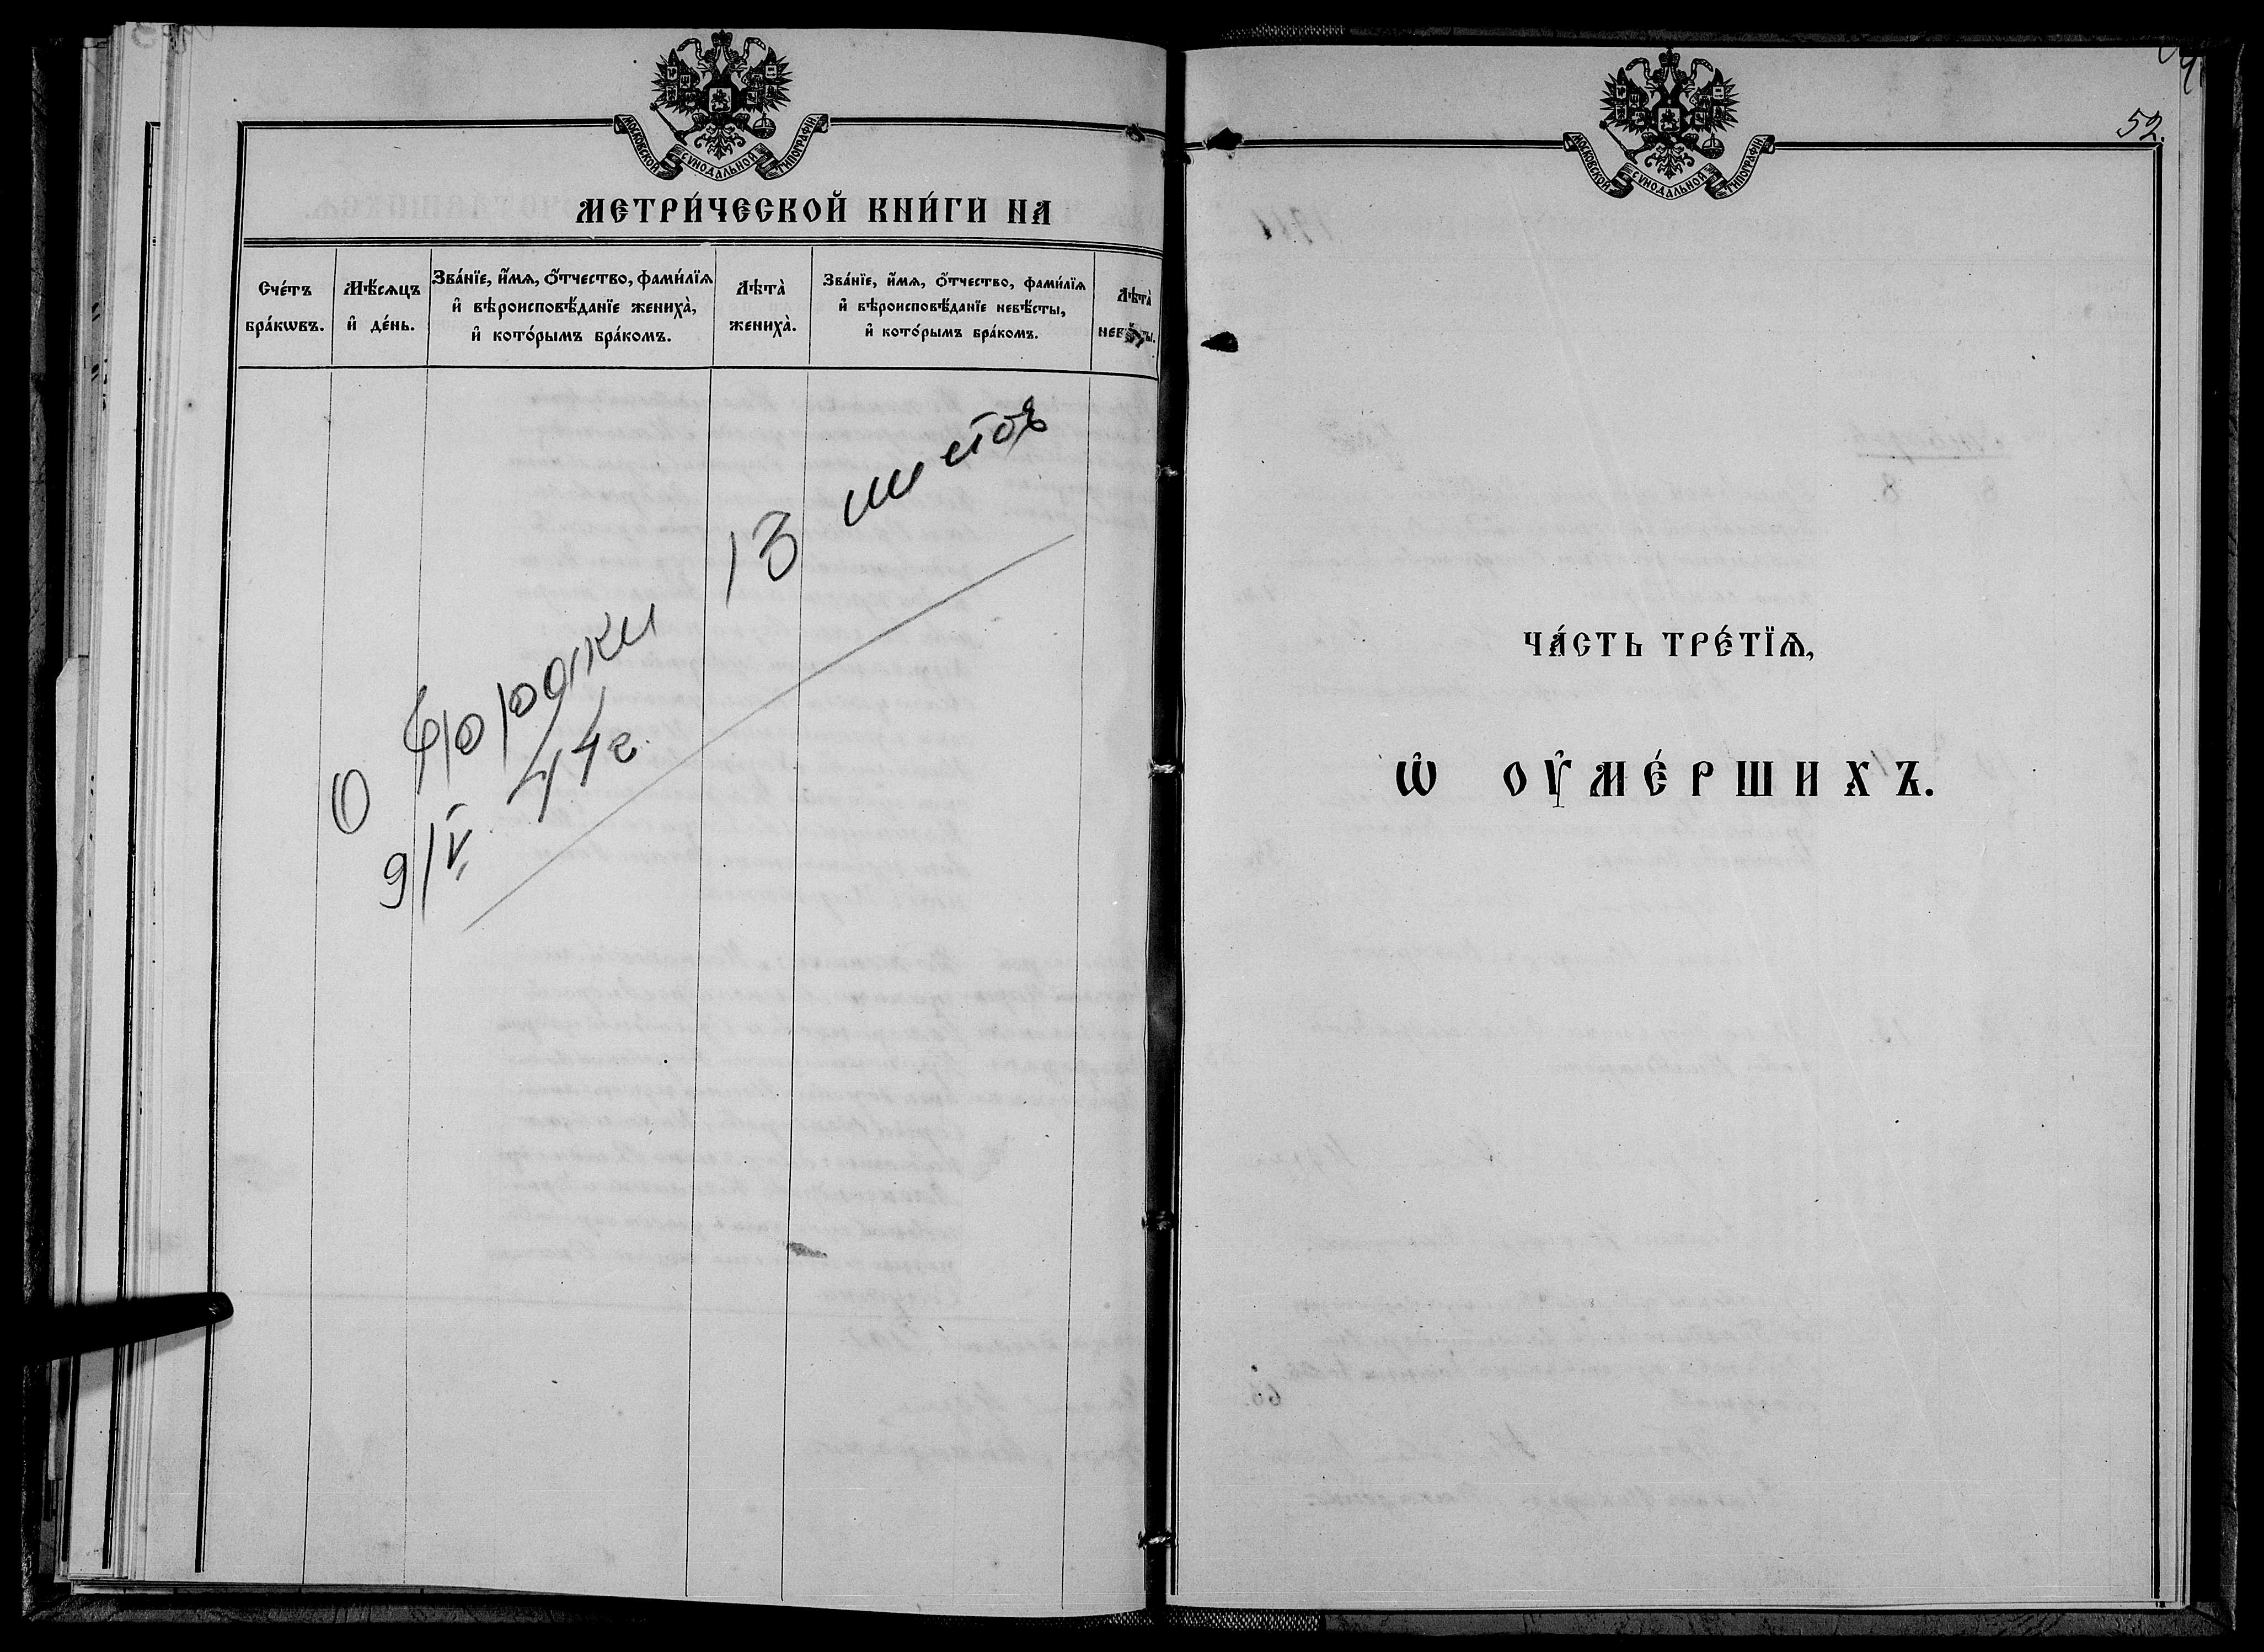 МОСКОВСКОЙ СѴНОДАЛЬНОЙ ТИПОГРАФІИ
МЕТРИ́ЧЕСКОЙ КНИ́ГИ НА
Сче́тъ бра́кѡвъ.
Мѣ́сѧцъ и҆ де́нь.
Зва́нїе, и҆́мѧ, ѻ҆́тчество, фами́лїѧ
и҆ вѣроисповѣ́данїе жениха̀,
и҆ кото́рымъ бра́комъ.
Лѣта̀ жениха̀.
Зва́нїе, и҆́мѧ, ѻ҆́тчество, фами́лїѧ
и҆ вѣроисповѣ́данїе невѣ́сты,
и҆ кото́рымъ бра́комъ.
Лѣта̀ невѣ́сты.
О браки 13 листов
9/V 44 г.
52.
МОСКОВСКОЙ СѴНОДАЛЬНОЙ ТИПОГРАФІИ
ЧА́СТЬ ТРЕ́ТЇѦ,
Ѡ҆ ОУ҆МЕ́РШИХЪ.